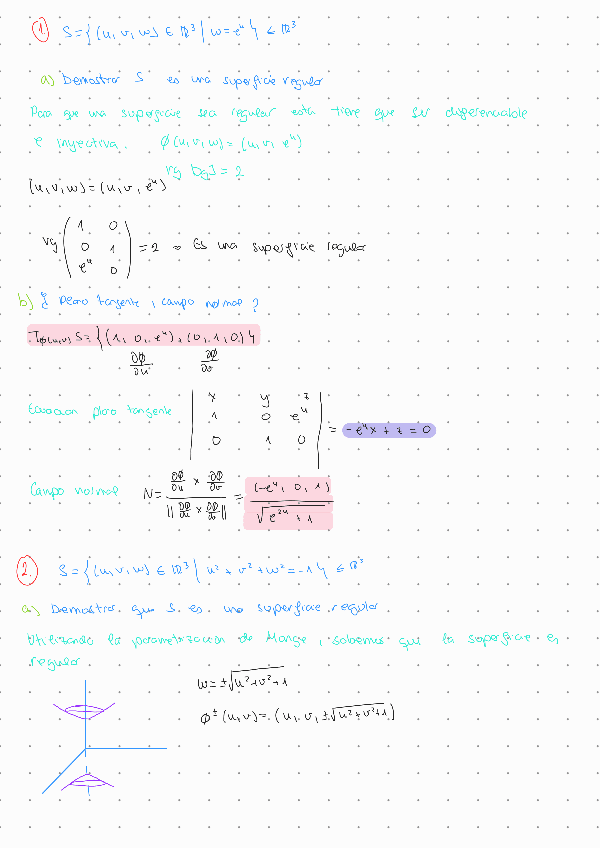 1. S = { (u, v, w) ∈ ℝ³ / w = eᵘ } ⊆ ℝ³
a) Demostrar S es una superficie regular
Para que una superficie sea regular esta tiene que ser diferenciable
e inyectiva. ϕ(u, v, w) = (u, v, eᵘ)
rg = 2
(u, v, w) = (u, v, eᵘ)
rg ( 1 0
0 1
eᵘ 0 ) = 2 ⇒ Es una superficie regular
b) ¿ Plano tangente, campo normal ?
T_ϕ(u,v) S = { (1, 0, eᵘ), (0, 1, 0) }
∂ϕ/∂u ∂ϕ/∂v
Ecuación plano tangente | x y z
1 0 eᵘ
0 1 0 | = -eᵘx + z = 0
Campo normal N = (∂ϕ/∂u × ∂ϕ/∂v) / ||∂ϕ/∂u × ∂ϕ/∂v|| = (-eᵘ, 0, 1) / √(e²ᵘ + 1)
2. S = { (u, v, w) ∈ ℝ³ / u² + v² + w² = -1 } ⊆ ℝ³
a) Demostrar que S es una superficie regular
Utilizando la parametrización de Monge, sabemos que la superficie es
regular
w = ±√(u² + v² + 1)
ϕ±(u, v) = (u, v, ±√(u² + v² + 1))